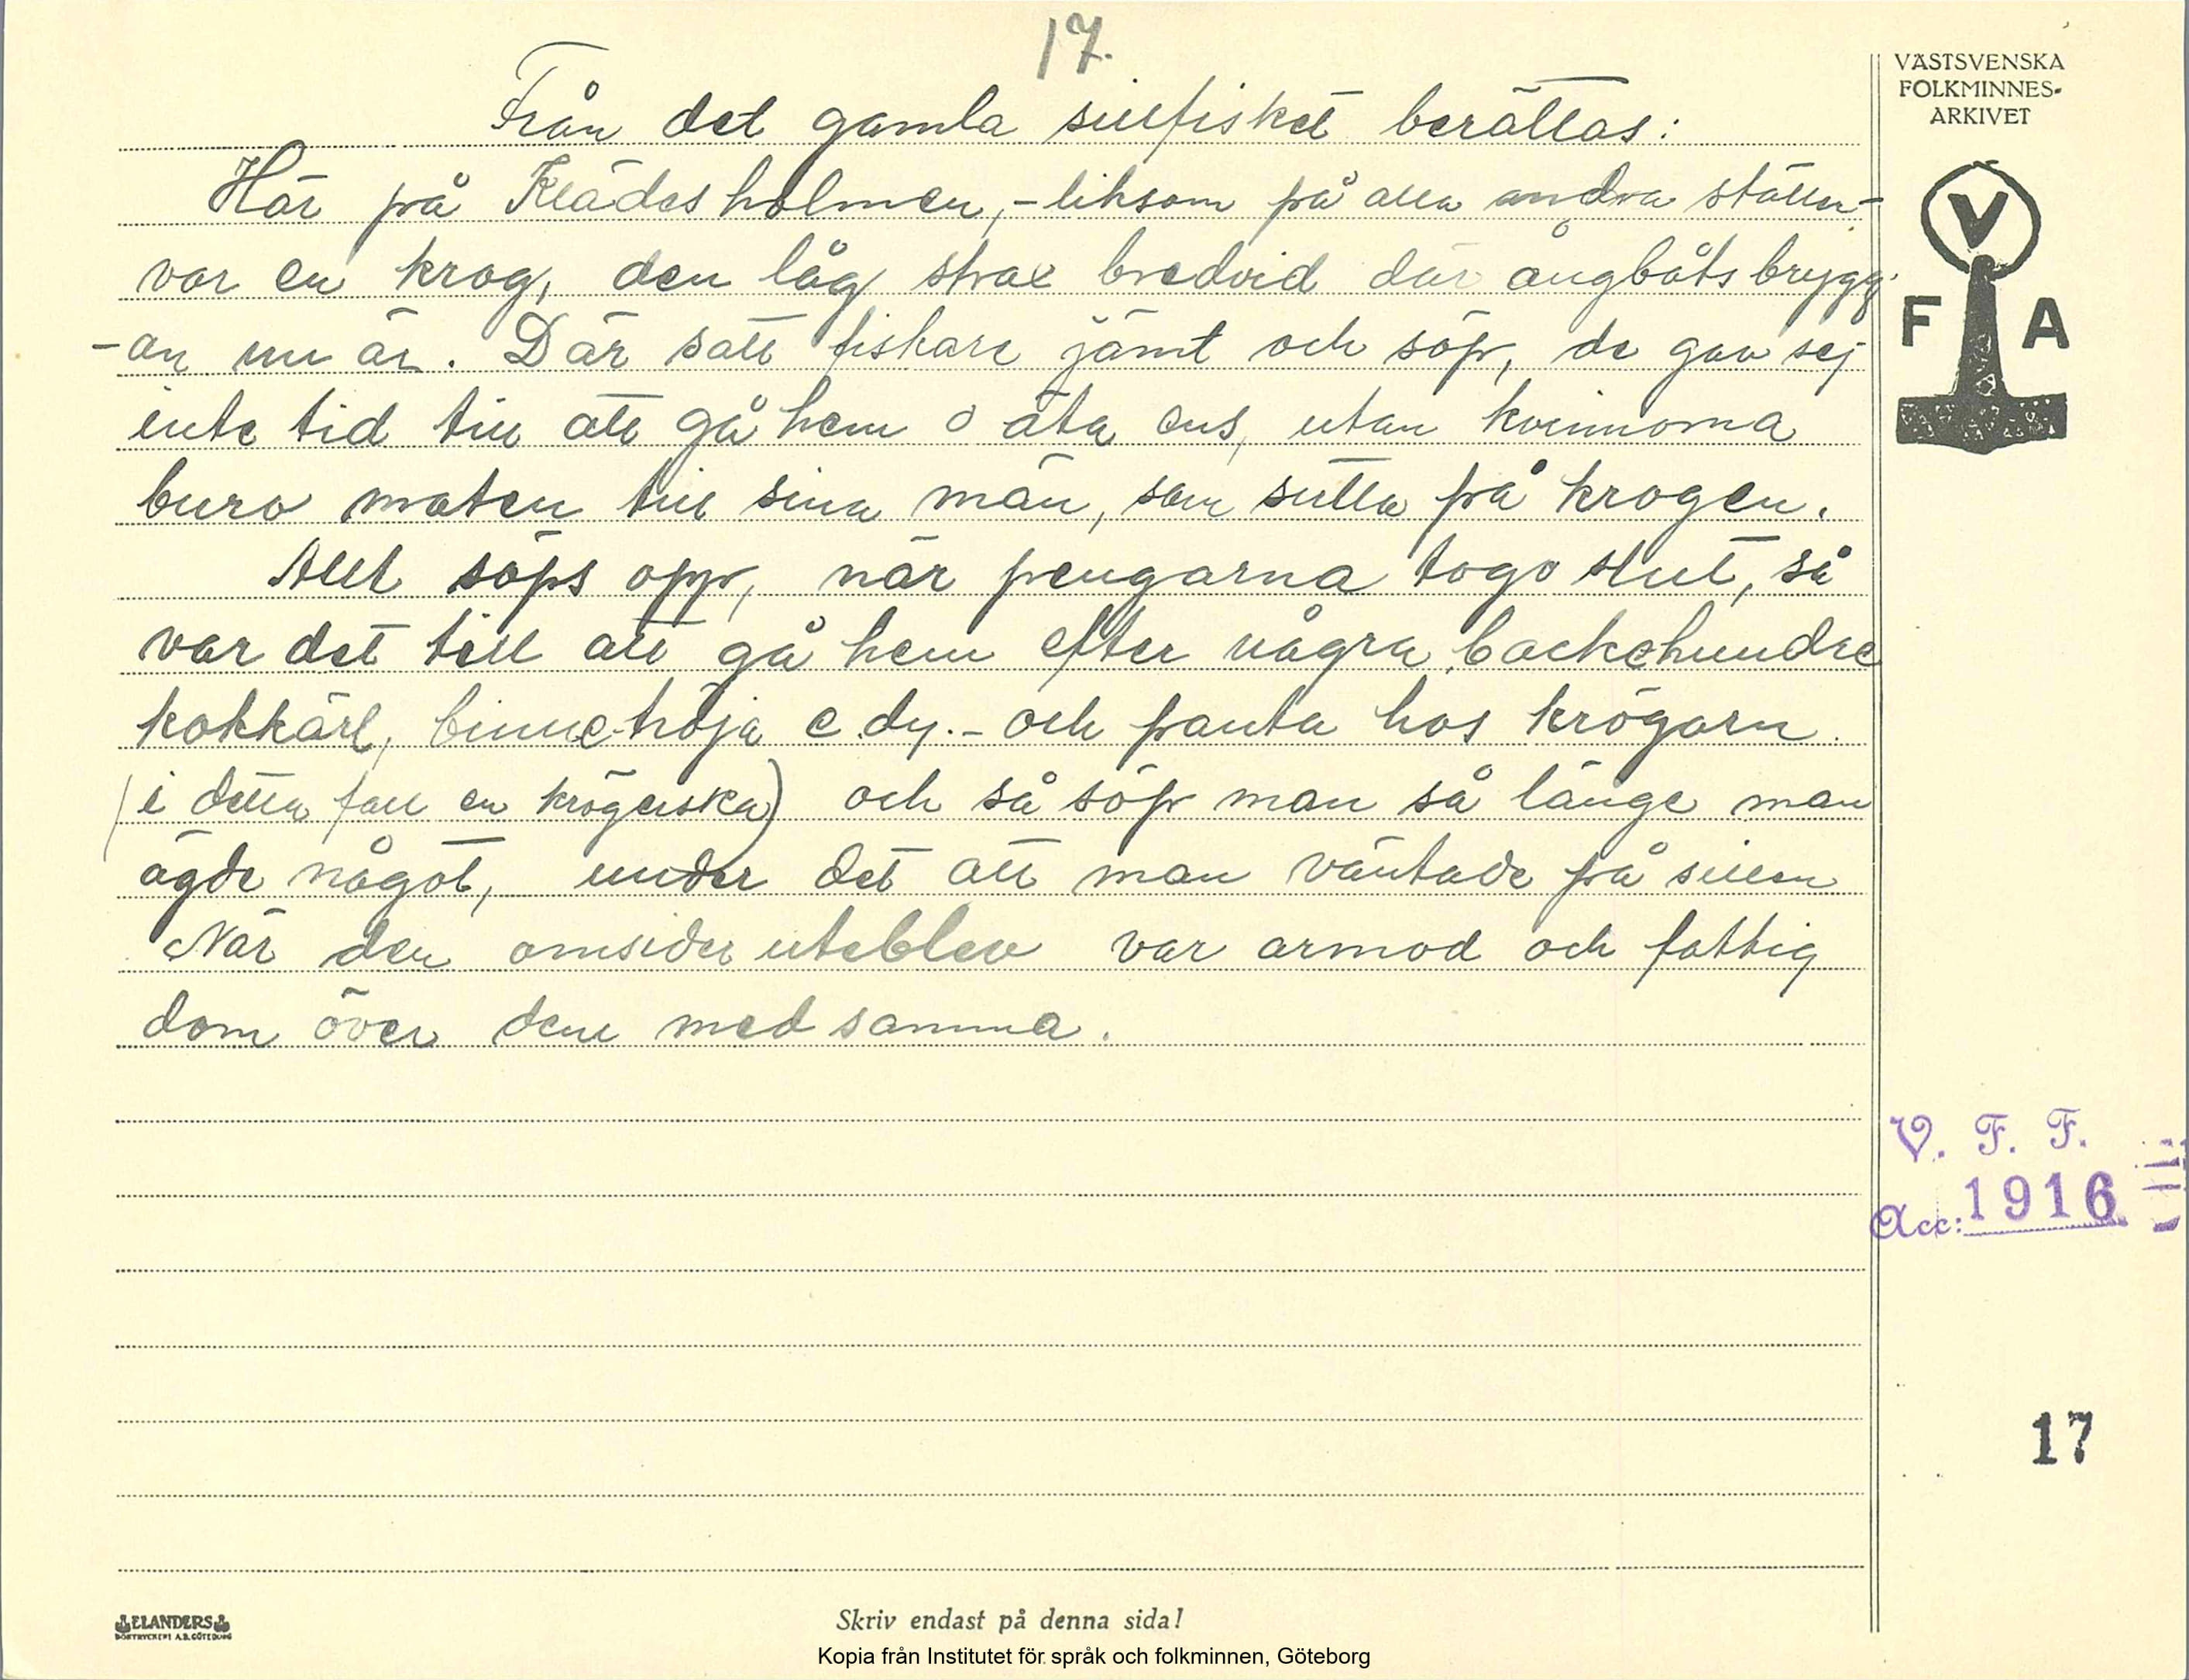 17.
Från det gamla sillfisket berättas:
VÄSTSVENSKA
FOLKMINNES-
ARKIVET
Här på Klädesholmen, - liksom på alla andra ställen -
var en krog, den låg strax bredvid där ångbåtsbrygg-
-an nu är. Där satt fiskare jämt och söp, de gav sej
V
F A
inte tid till att gå hem o äta ens, utan kvinnorna
buro maten till sina män, som sutto på krogen.
Allt söps opp, när pengarna togo slut, så
var det till att gå hem efter några backehundre
kokkärl, binne-höja e. dy. - och panta hos krögarn
(i detta fall en krögerska) och så söp man så länge man
ägde något, under det att man väntade på sillen
När den omsider uteblev var armod och fattig
dom över dem med samma.
V. F. F.
Acc: 1916
17
ELANDERS
BOKTRYCKERI A.B. GÖTEBORG
Skriv endast på denna sida!
Kopia från Institutet för språk och folkminnen, Göteborg